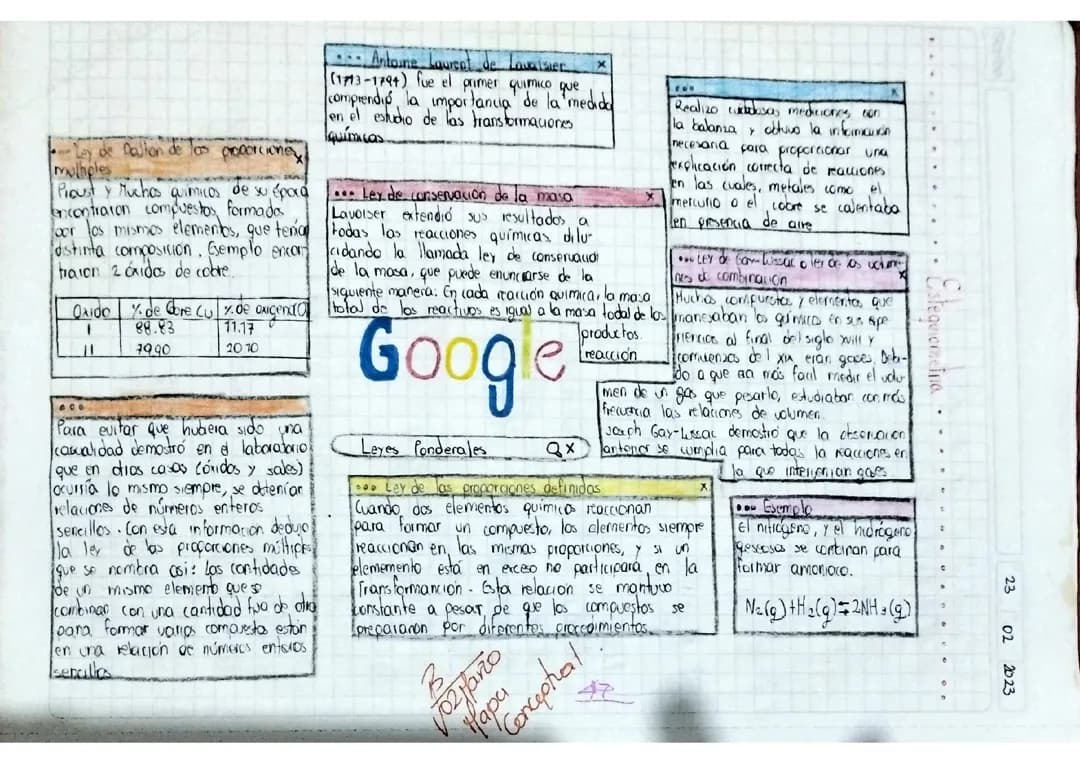 ... Antoine Laurent de Lavoisier x
(1793-1794) fue el primer químico que
comprendió la importancia de la medida
en el estudio de las transformaciones
químicas
... x
Realizo cuidadosas mediciones con
la balanza y obtuvo la información
necesaria para proporcionar una
explicación correcta de reacciones
en las cuales, metales como el
mercurio o el cobre se calentaba
en presencia de aire
... Ley de Dalton de las proporciones x
multiples
Proust y Muchos quimicos de su época
encontraron compuestos, formada
por los mismos elementos, que tenia
distinta composición. Ejemplo encon
traron 2 óxidos de cobre
Oxido % de Cobre Cu % de oxigeno(O)
I 88.83 11.17
II 79.90 20 10
... Ley de conservación de la masa x
Lavoiser extendió sus resultados a
todas las reacciones químicas dilu-
cidando la llamada ley de conservacio
de la masa, que puede enunciarse de la
siguiente manera: En cada reacción química, la masa
total de los reactivos es igual a la masa todal de los
productos.
reacción
... LEY de Gay-Lussac o ley de los volume-
nes de combinación x
Muchos compuestos y elementos que
manejaban los químicos en sus expe
riencias al final del siglo XVIII y
comienzos del xix eran gases, Debi-
do a que era más facil medir el volu
men de un gas que pesarlo, estudiaban con más
frecuencia las relaciones de volumen.
Joseph Gay-Lussac demostró que la observacion
anterior se cumplia para todas la reacciones en
la que intervenian gases
Google
Leyes Ponderales x
...
Para evitar que hubiera sido una
casualidad demostró en el laboratorio
que en otros casos (óxidos y sales)
ocurría lo mismo siempre, se obtenían
relaciones de números enteros
sencillos. Con esta información dedujo
la ley de las proporciones múltiples
que se nombra asi: Las cantidades
de un mismo elemento que se
combinan con una cantidad fija de otro
para formar varios compuestos están
en una relación de números enteros
sencillos
... Ley de las proporciones definidas x
Cuando dos elementos químicos reaccionan
para formar un compuesto, los elementos siempre
reaccionan en las mismas proporciones, y si un
elemento está en exceso no participará en la
Transformanción. Esta relación se mantuvo
constante a pesar de que los compuestos se
prepararon por diferentes procedimientos
... Ejemplo
El nitrógeno, y el hidrógeno
gaseosos se conbinan para
formar amoniaco.
N₂(g)+H₂(g)⇌2NH₃(g)
Estequiometria
23 02 2023
B
02/Marzo
Mapa
Conceptual